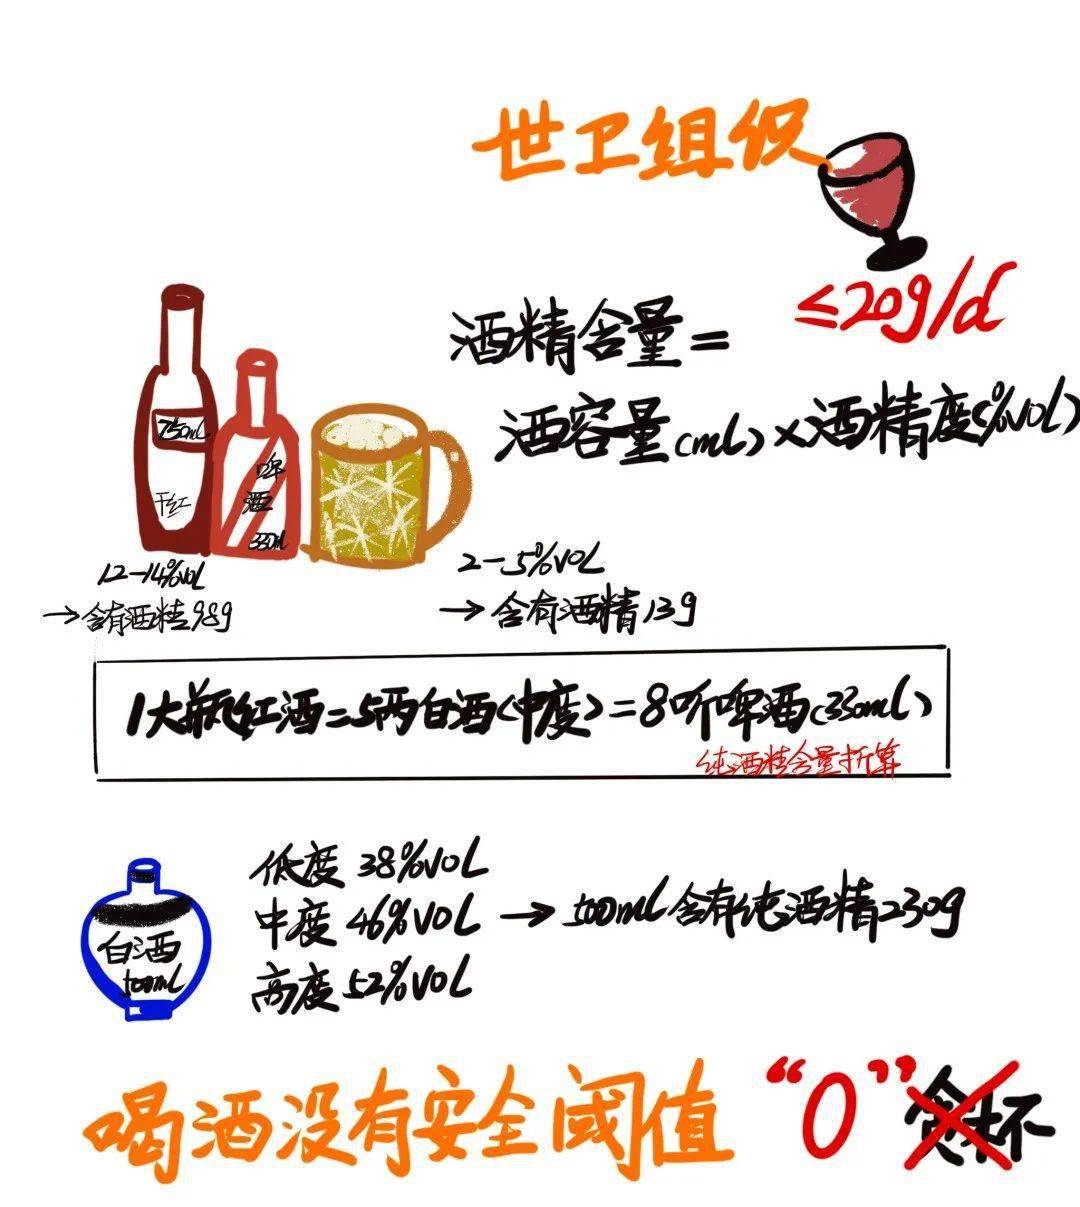 世卫组织
≤20g/d
酒精含量=
酒容量(ml)×酒精度(%VOL)
750mL
干红
啤
酒
330ml
12-14%VOL
→含有酒精98g
2-5%VOL
→含有酒精13g
1大瓶红酒=5两白酒(中度)=8听啤酒(330ml)
纯酒精含量折算
低度 38%VOL
中度 46%VOL → 500mL含有纯酒精230g
高度 52%VOL
白酒
500mL
喝酒没有安全阈值 “0”贪杯